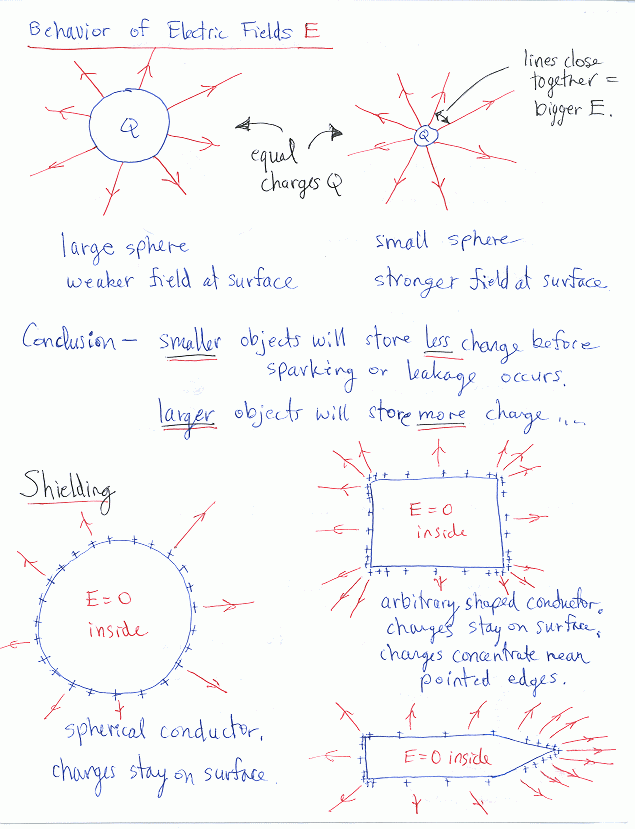 Behavior of Electric Fields E
lines close
together =
bigger E.
Q
Q
equal
charges Q
large sphere
weaker field at surface
small sphere
stronger field at surface.
Conclusion — smaller objects will store less charge before
sparking or leakage occurs.
larger objects will store more charge ....
Shielding
E = 0
inside
E = 0
inside
arbitrary shaped conductor.
charges stay on surface,
charges concentrate near
pointed edges.
spherical conductor,
charges stay on surface.
E = 0 inside